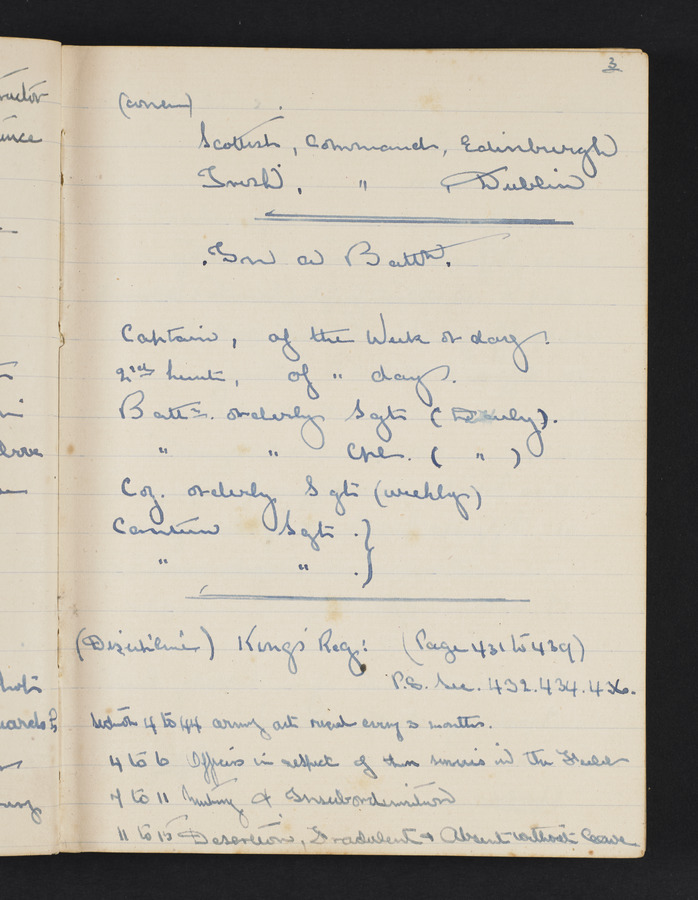 3
Scottish, Command, Edinburgh
Irish, " Dublin
In a Battn.
Captain, of the Week or day.
2nd Lieut, of " day.
Battn. orderly Sgts (Daily).
" " Cpl. ( " )
Coy. orderly Sgts (weekly)
Canteen Sgts . }
" " . }
(Discipline) Kings Reg: (Page 431 to 439)
P.S. Sec. 432. 434. 436.
Section 4 to 44 army act read every 3 months.
4 to 6 Officers in respect of their service in the Field
7 to 11 Mutiny & Insubordination
11 to 15 Desertion, Fradulent & Absent without leave
ructor
ance
above
uards